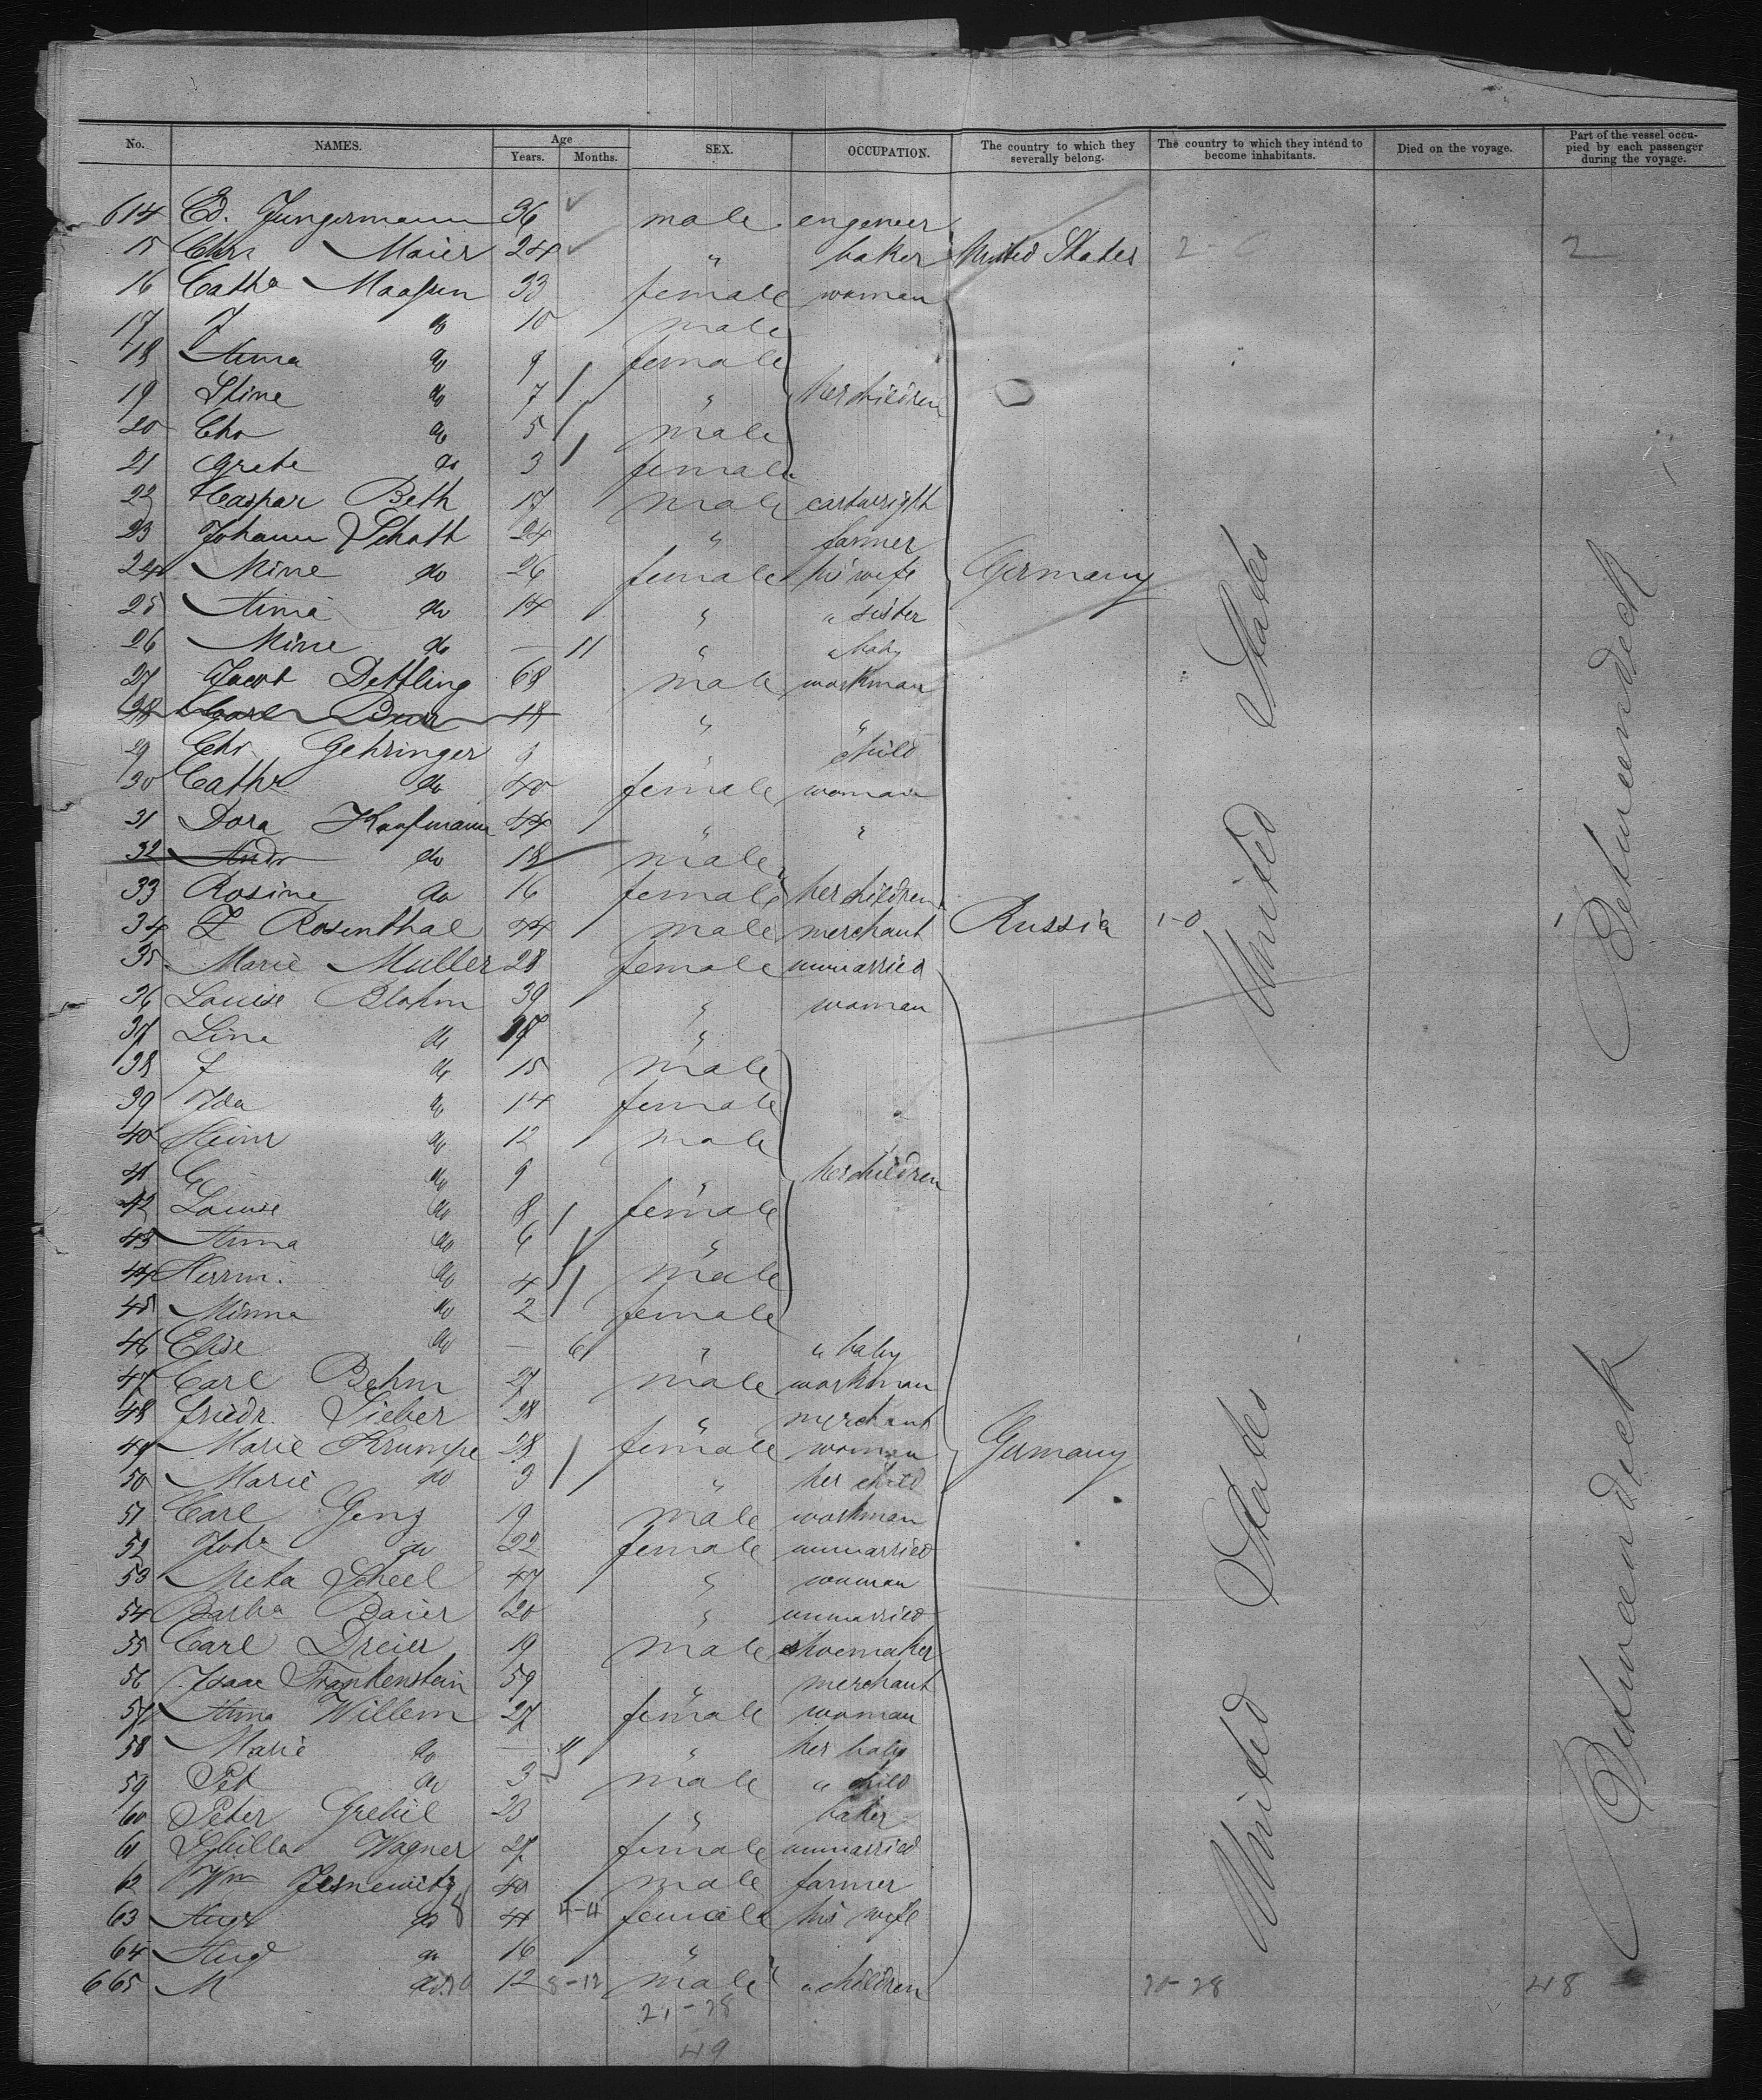 No. NAMES. Age Years. Months. SEX. OCCUPATION. The country to which they severally belong. The country to which they intend to become inhabitants. Died on the voyage. Part of the vessel occupied by each passenger during the voyage.
614 Ed. Jungermann 36 male engeneer
15 Chr Maier 24 " baker United States 2-0 2
16 Cathe Maassen 33 female woman
17 J do 10 male
18 Anna do 9 female
19 Stine do 7 " her children
20 Chr do 5 male
21 Grete do 3 female
22 Caspar Beth 17 male cartwrigth
23 Johann Schott 24 " farmer
24 Mine do 26 female his wife Germany
25 Anna do 14 " " sister
26 Mine do — 11 " " baby
27 Jacob Dettling 68 male workman
28 Carl 18 " "
29 Chr. Gehringer 9 " child
30 Cathe do 40 female woman
31 Dora Kaufmann 44 " "
32 Andr do 18 male
33 Rosine do 16 female her children
34 Z Rosenthal 44 male merchant Russia 1-0 1
35 Marie Muller 28 female unmarried
36 Louise Blohm 39 " woman
37 Lina do "
38 J do 15 male
39 Ida do 14 female
40 Heinr do 12 male
41 G do 9 " her children
42 Louise do 8 female
43 Anna do 6 "
44 Herrm. do 4 male
45 Minna do 2 female
46 Elise do — 6 " " baby
47 Carl Behm 27 male workman
48 Friedr. Sieber 28 " merchant
49 Marie Krumpe 28 female woman Germany
50 Marie do 3 " her child
51 Carl Genz 19 male workman
52 Joha do 22 female unmarried
53 Meta Scheel 47 " woman
54 Barba Baier 20 " unmarried
55 Carl Dreier 19 male shoemaker
56 Isaac Frankenstein 59 " merchant
57 Anna Willem 27 female woman
58 Marie do — 11 " her baby
59 Pet do 3 male " child
60 Peter Grebil 23 " baker
61 Sibilla Wagner 27 female unmarried
62 Wm Jesnewitz 40 male farmer
63 Aug do 8 41 4-4 female his wife
64 Aug do 16 "
665 M do 12 8-12 male " children 20-28 48
21-28
49
United States
Betweendeck
United States
Betweendeck